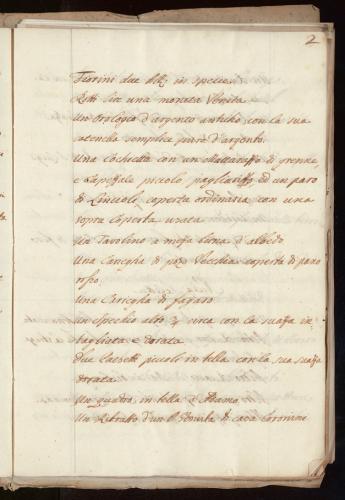 2
Fiorini due
in specie
una moneta Veneta
Un Orologio d'argento anticho con la sua
catenella semplice pure d'argento.
Una Cochietta con un
e Capezzale picolo pagliarizzo ed un paro
di Linzuoli, coperta ordinaria con una
sopra Coperta usata
Un Tavolino a meza luna d'albedo
Una Careghia di Vechia coperta di pano
rosso.
Una Carieghia di fagaro
Un spechio alto 3/4 circa con la suazza in-
tagliata e Dorata
Due Cazetti picoli in tella con la sua suazza
dorata
Un quadro in tella d'Adamo
Un Ritratto d'un di casa Coronini